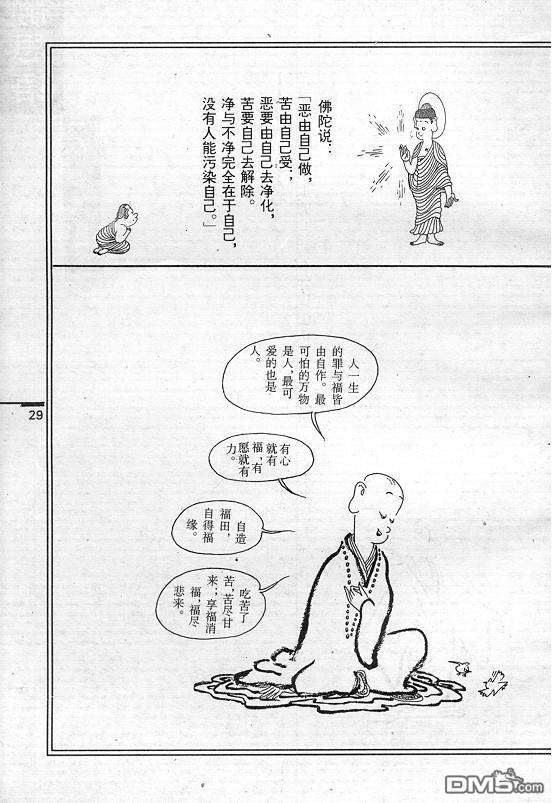 佛陀说：
「恶由自己做，
苦由自己受；
恶要由自己去净化，
苦要自己去解除。
净与不净完全在于自己，
没有人能污染自己。」
人一生
的罪与福皆
由自作。最
可怕的万物
是人，最可
爱的也是
人。
有心
就有
福，有
愿就有
力。
自造
福田，
自得福
缘。
吃苦了
苦，苦尽甘
来；享福消
福，福尽
悲来。
29
DM5.com